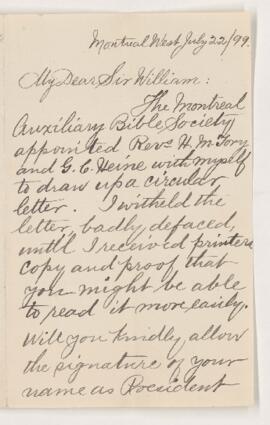 Montreal West July 22/99.
My Dear Sir William:
The Montreal
Auxiliary Bible Society
appointed Revs H. M. Tory
and G. C. Heine with myself
to draw up a circular
letter. I witheld the
letter, badly defaced,
until I received printers
copy and proof that
you might be able
to read it more easily.
Will you kindly allow
the signature of your
name as President